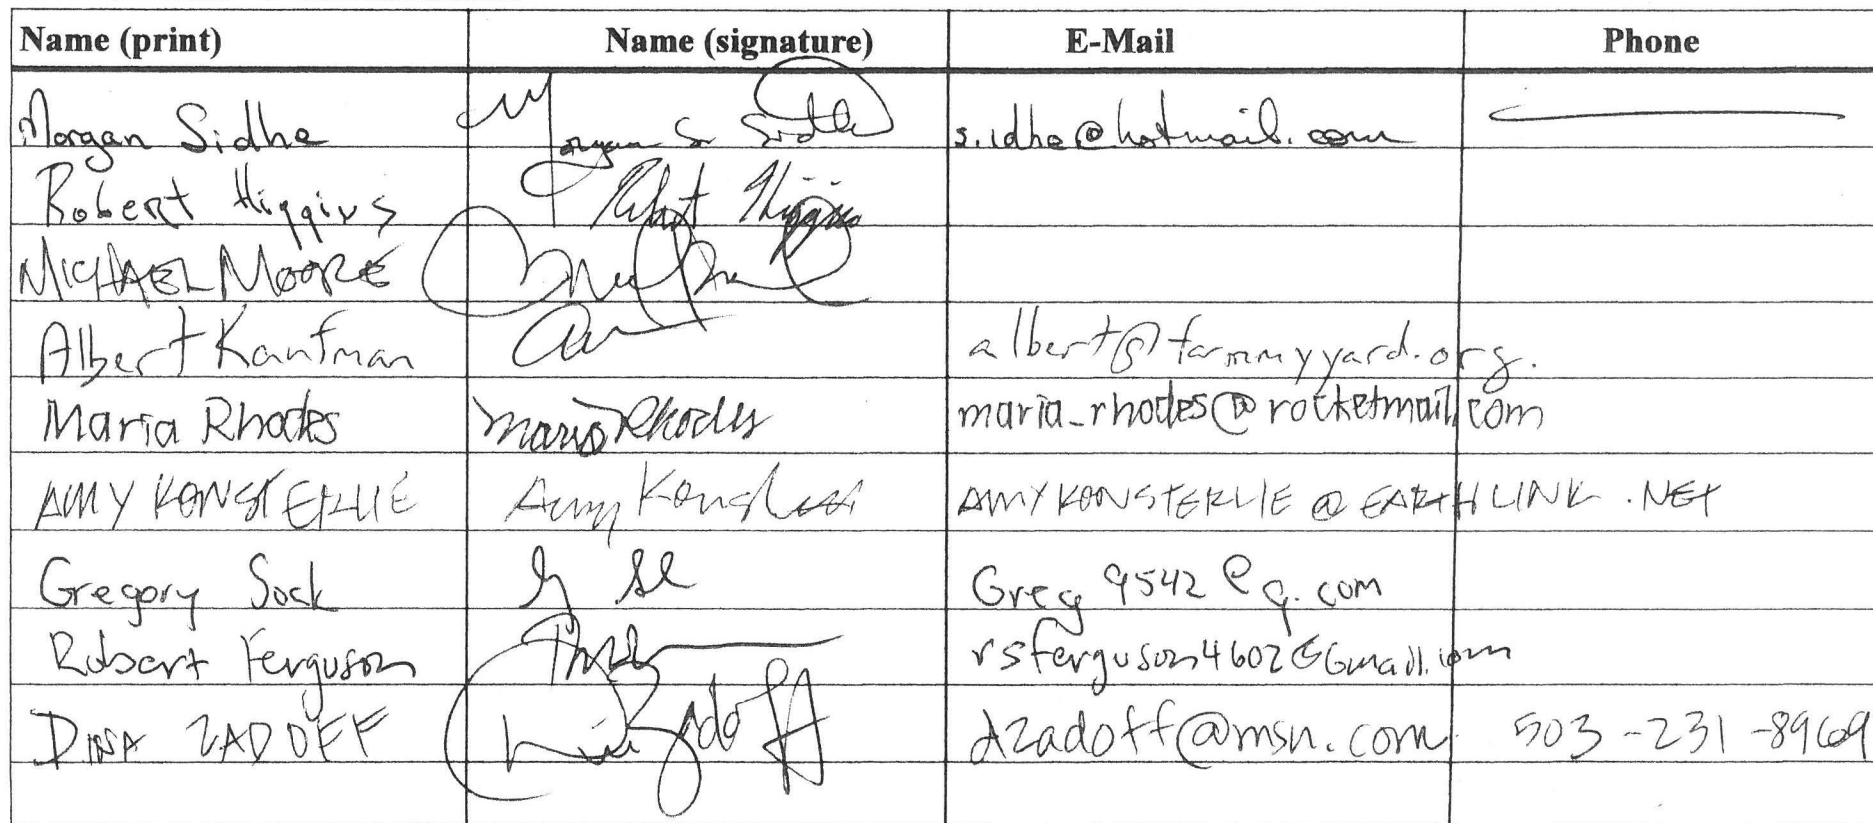 Name (print) Name (signature) E-Mail Phone
Morgan Sidhe Morgan S. Sidhe s.idhe@hotmail.com
Robert Higgins Robert Higgins
MICHAEL MOORE
Albert Kaufman albert@farmmyyard.org.
Maria Rhodes Maria Rhodes maria_rhodes@rocketmail.com
AMY KONSTERLIE Amy AMYKONSTERLIE@EARTHLINK.NET
Gregory Sock Greg9542@q.com
Robert Ferguson rsferguson4602@Gmail.com
DINA ZADOFF Zadoff dzadoff@msn.com 503-231-8969